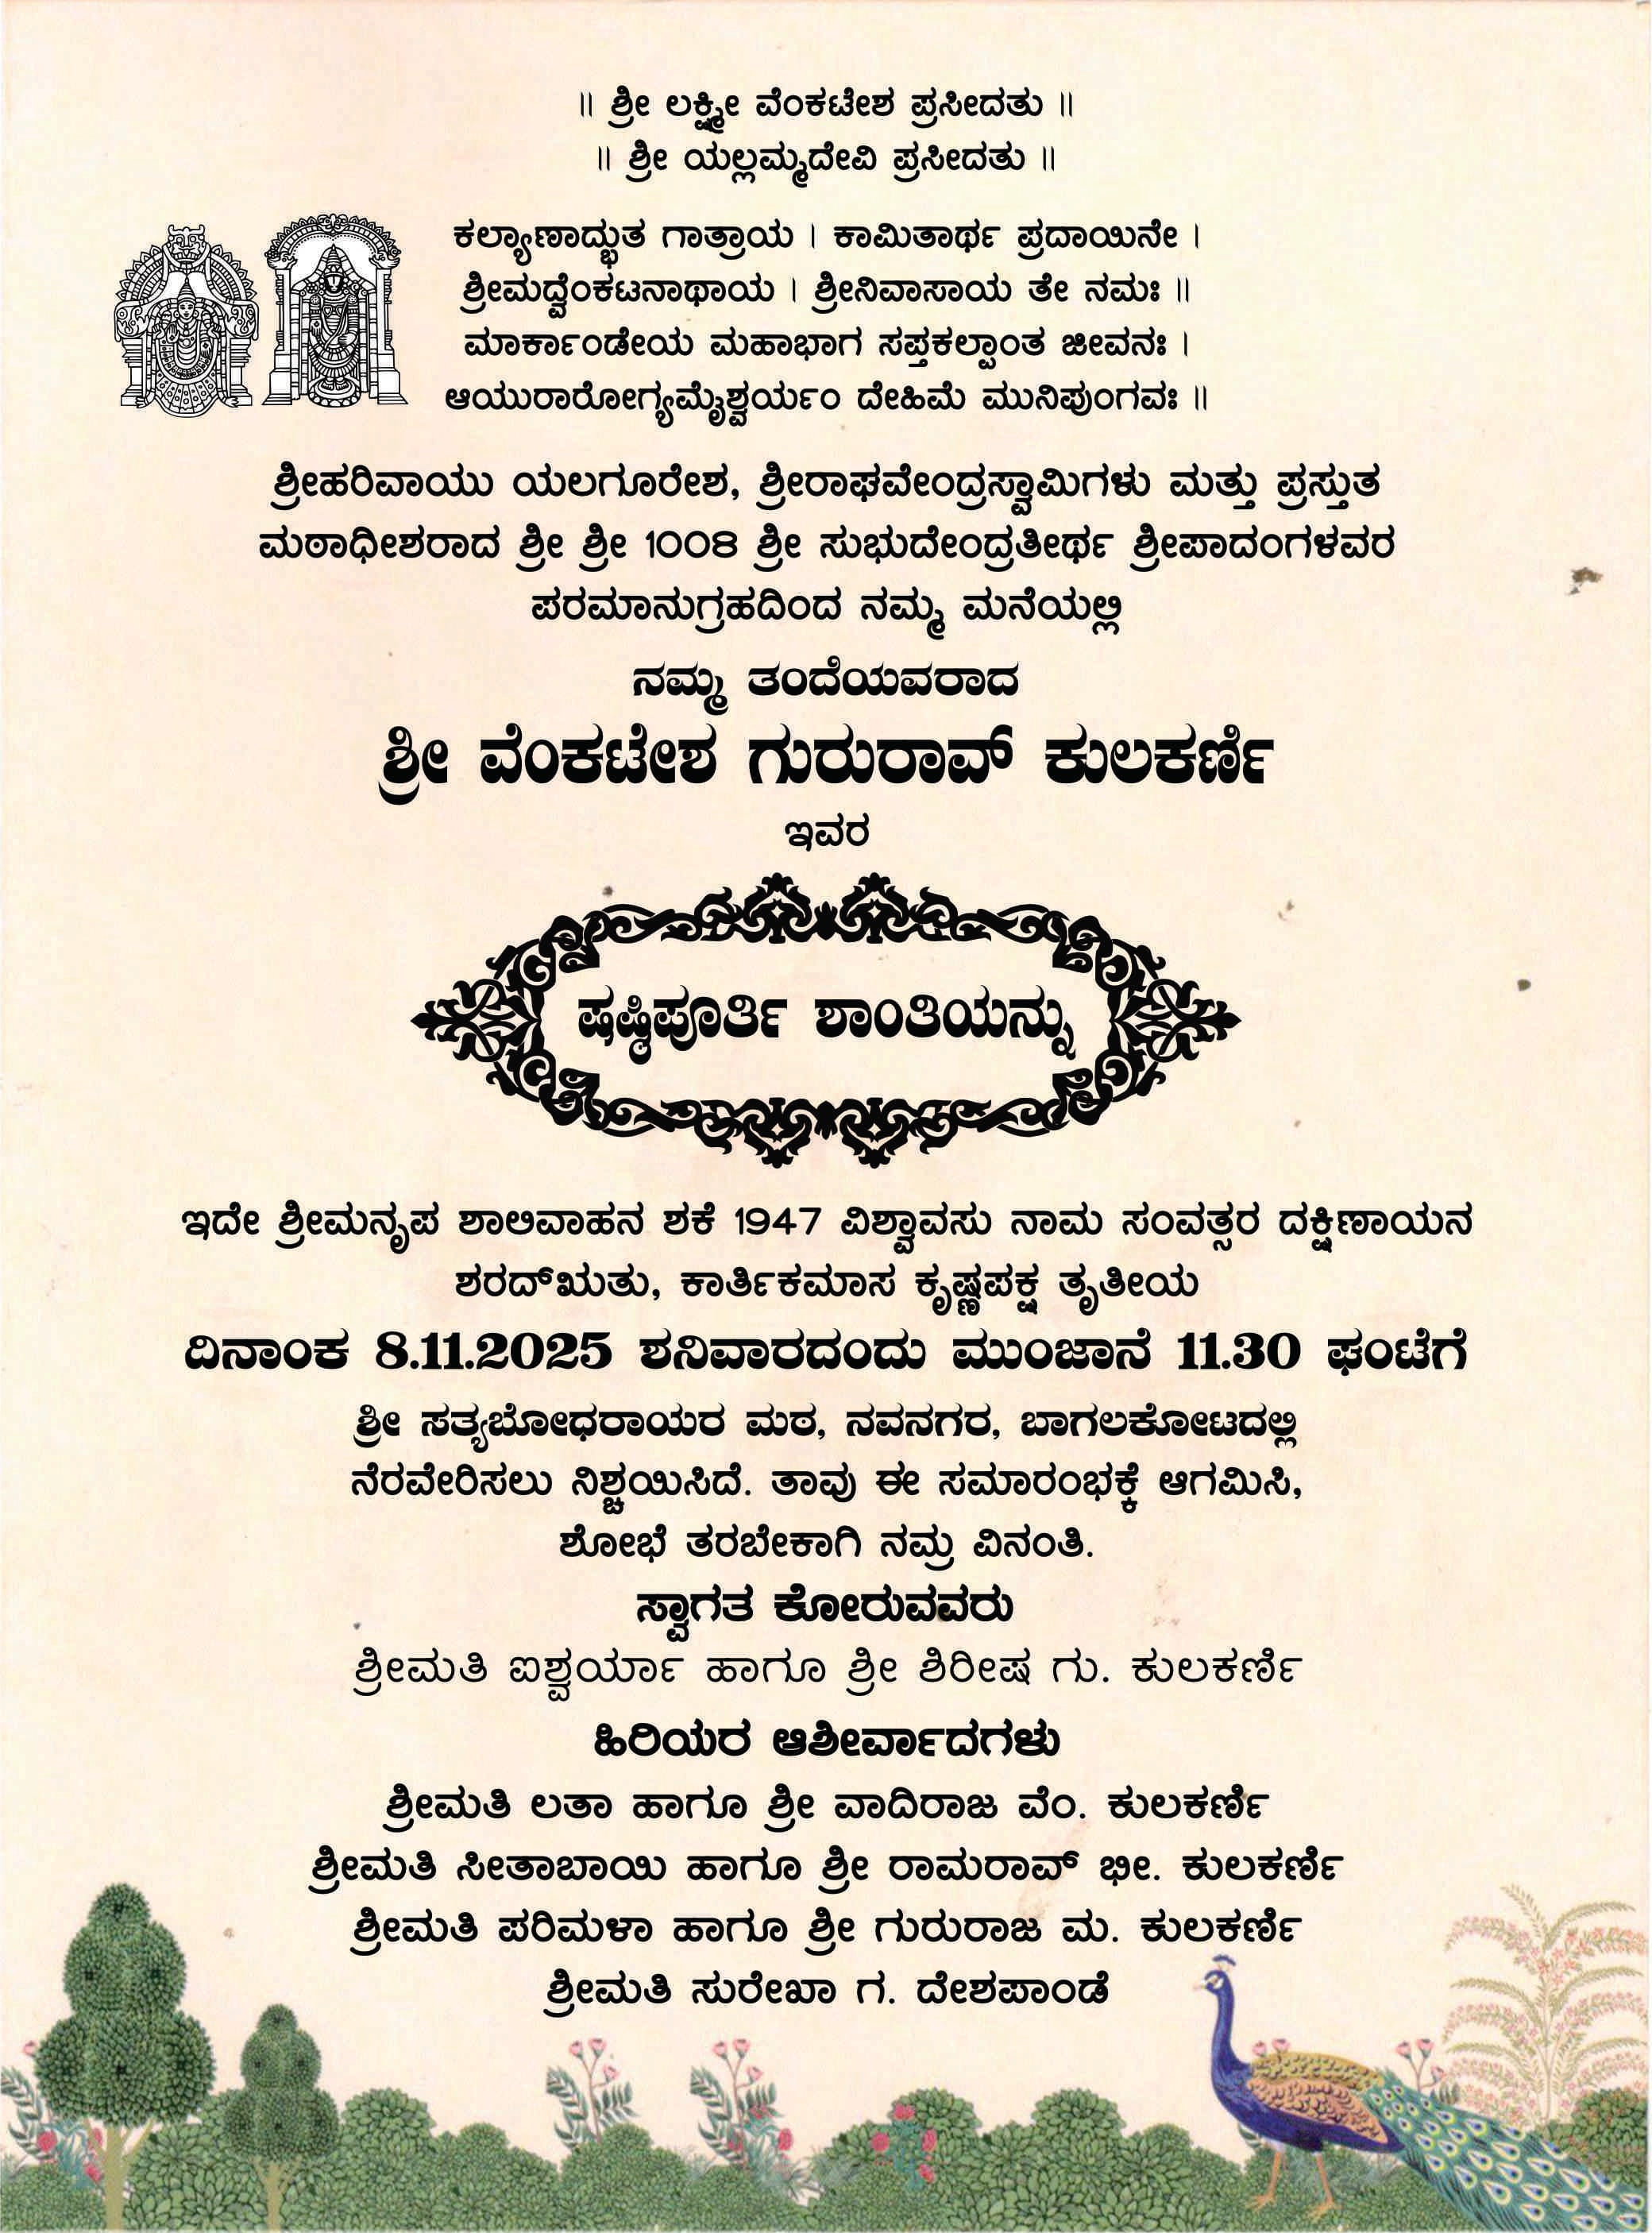 ॥ ಶ್ರೀ ಲಕ್ಷ್ಮೀ ವೆಂಕಟೇಶ ಪ್ರಸೀದತು ॥
॥ ಶ್ರೀ ಯಲ್ಲಮ್ಮದೇವಿ ಪ್ರಸೀದತು ॥
ಕಲ್ಯಾಣಾದ್ಭುತ ಗಾತ್ರಾಯ । ಕಾಮಿತಾರ್ಥ ಪ್ರದಾಯಿನೇ ।
ಶ್ರೀಮದ್ವೆಂಕಟನಾಥಾಯ । ಶ್ರೀನಿವಾಸಾಯ ತೇ ನಮಃ ॥
ಮಾರ್ಕಾಂಡೇಯ ಮಹಾಭಾಗ ಸಪ್ತಕಲ್ಪಾಂತ ಜೀವನಃ ।
ಆಯುರಾರೋಗ್ಯಮೈಶ್ವರ್ಯಂ ದೇಹಿಮೆ ಮುನಿಪುಂಗವಃ ॥
ಶ್ರೀಹರಿವಾಯು ಯಲಗೂರೇಶ, ಶ್ರೀರಾಘವೇಂದ್ರಸ್ವಾಮಿಗಳು ಮತ್ತು ಪ್ರಸ್ತುತ
ಮಠಾಧೀಶರಾದ ಶ್ರೀ ಶ್ರೀ 1008 ಶ್ರೀ ಸುಭುದೇಂದ್ರತೀರ್ಥ ಶ್ರೀಪಾದಂಗಳವರ
ಪರಮಾನುಗ್ರಹದಿಂದ ನಮ್ಮ ಮನೆಯಲ್ಲಿ
ನಮ್ಮ ತಂದೆಯವರಾದ
ಶ್ರೀ ವೆಂಕಟೇಶ ಗುರುರಾವ್ ಕುಲಕರ್ಣಿ
ಇವರ
ಷಷ್ಠಿಪೂರ್ತಿ ಶಾಂತಿಯನ್ನು
ಇದೇ ಶ್ರೀಮನೃಪ ಶಾಲಿವಾಹನ ಶಕೆ 1947 ವಿಶ್ವಾವಸು ನಾಮ ಸಂವತ್ಸರ ದಕ್ಷಿಣಾಯನ
ಶರದ್‌ಋತು, ಕಾರ್ತಿಕಮಾಸ ಕೃಷ್ಣಪಕ್ಷ ತೃತೀಯ
ದಿನಾಂಕ 8.11.2025 ಶನಿವಾರದಂದು ಮುಂಜಾನೆ 11.30 ಘಂಟೆಗೆ
ಶ್ರೀ ಸತ್ಯಬೋಧರಾಯರ ಮಠ, ನವನಗರ, ಬಾಗಲಕೋಟದಲ್ಲಿ
ನೆರವೇರಿಸಲು ನಿಶ್ಚಯಿಸಿದೆ. ತಾವು ಈ ಸಮಾರಂಭಕ್ಕೆ ಆಗಮಿಸಿ,
ಶೋಭೆ ತರಬೇಕಾಗಿ ನಮ್ರ ವಿನಂತಿ.
ಸ್ವಾಗತ ಕೋರುವವರು
ಶ್ರೀಮತಿ ಐಶ್ವರ್ಯಾ ಹಾಗೂ ಶ್ರೀ ಶಿರೀಷ ಗು. ಕುಲಕರ್ಣಿ
ಹಿರಿಯರ ಆಶೀರ್ವಾದಗಳು
ಶ್ರೀಮತಿ ಲತಾ ಹಾಗೂ ಶ್ರೀ ವಾದಿರಾಜ ವೆಂ. ಕುಲಕರ್ಣಿ
ಶ್ರೀಮತಿ ಸೀತಾಬಾಯಿ ಹಾಗೂ ಶ್ರೀ ರಾಮರಾವ್ ಭೀ. ಕುಲಕರ್ಣಿ
ಶ್ರೀಮತಿ ಪರಿಮಳಾ ಹಾಗೂ ಶ್ರೀ ಗುರುರಾಜ ಮ. ಕುಲಕರ್ಣಿ
ಶ್ರೀಮತಿ ಸುರೇಖಾ ಗ. ದೇಶಪಾಂಡೆ